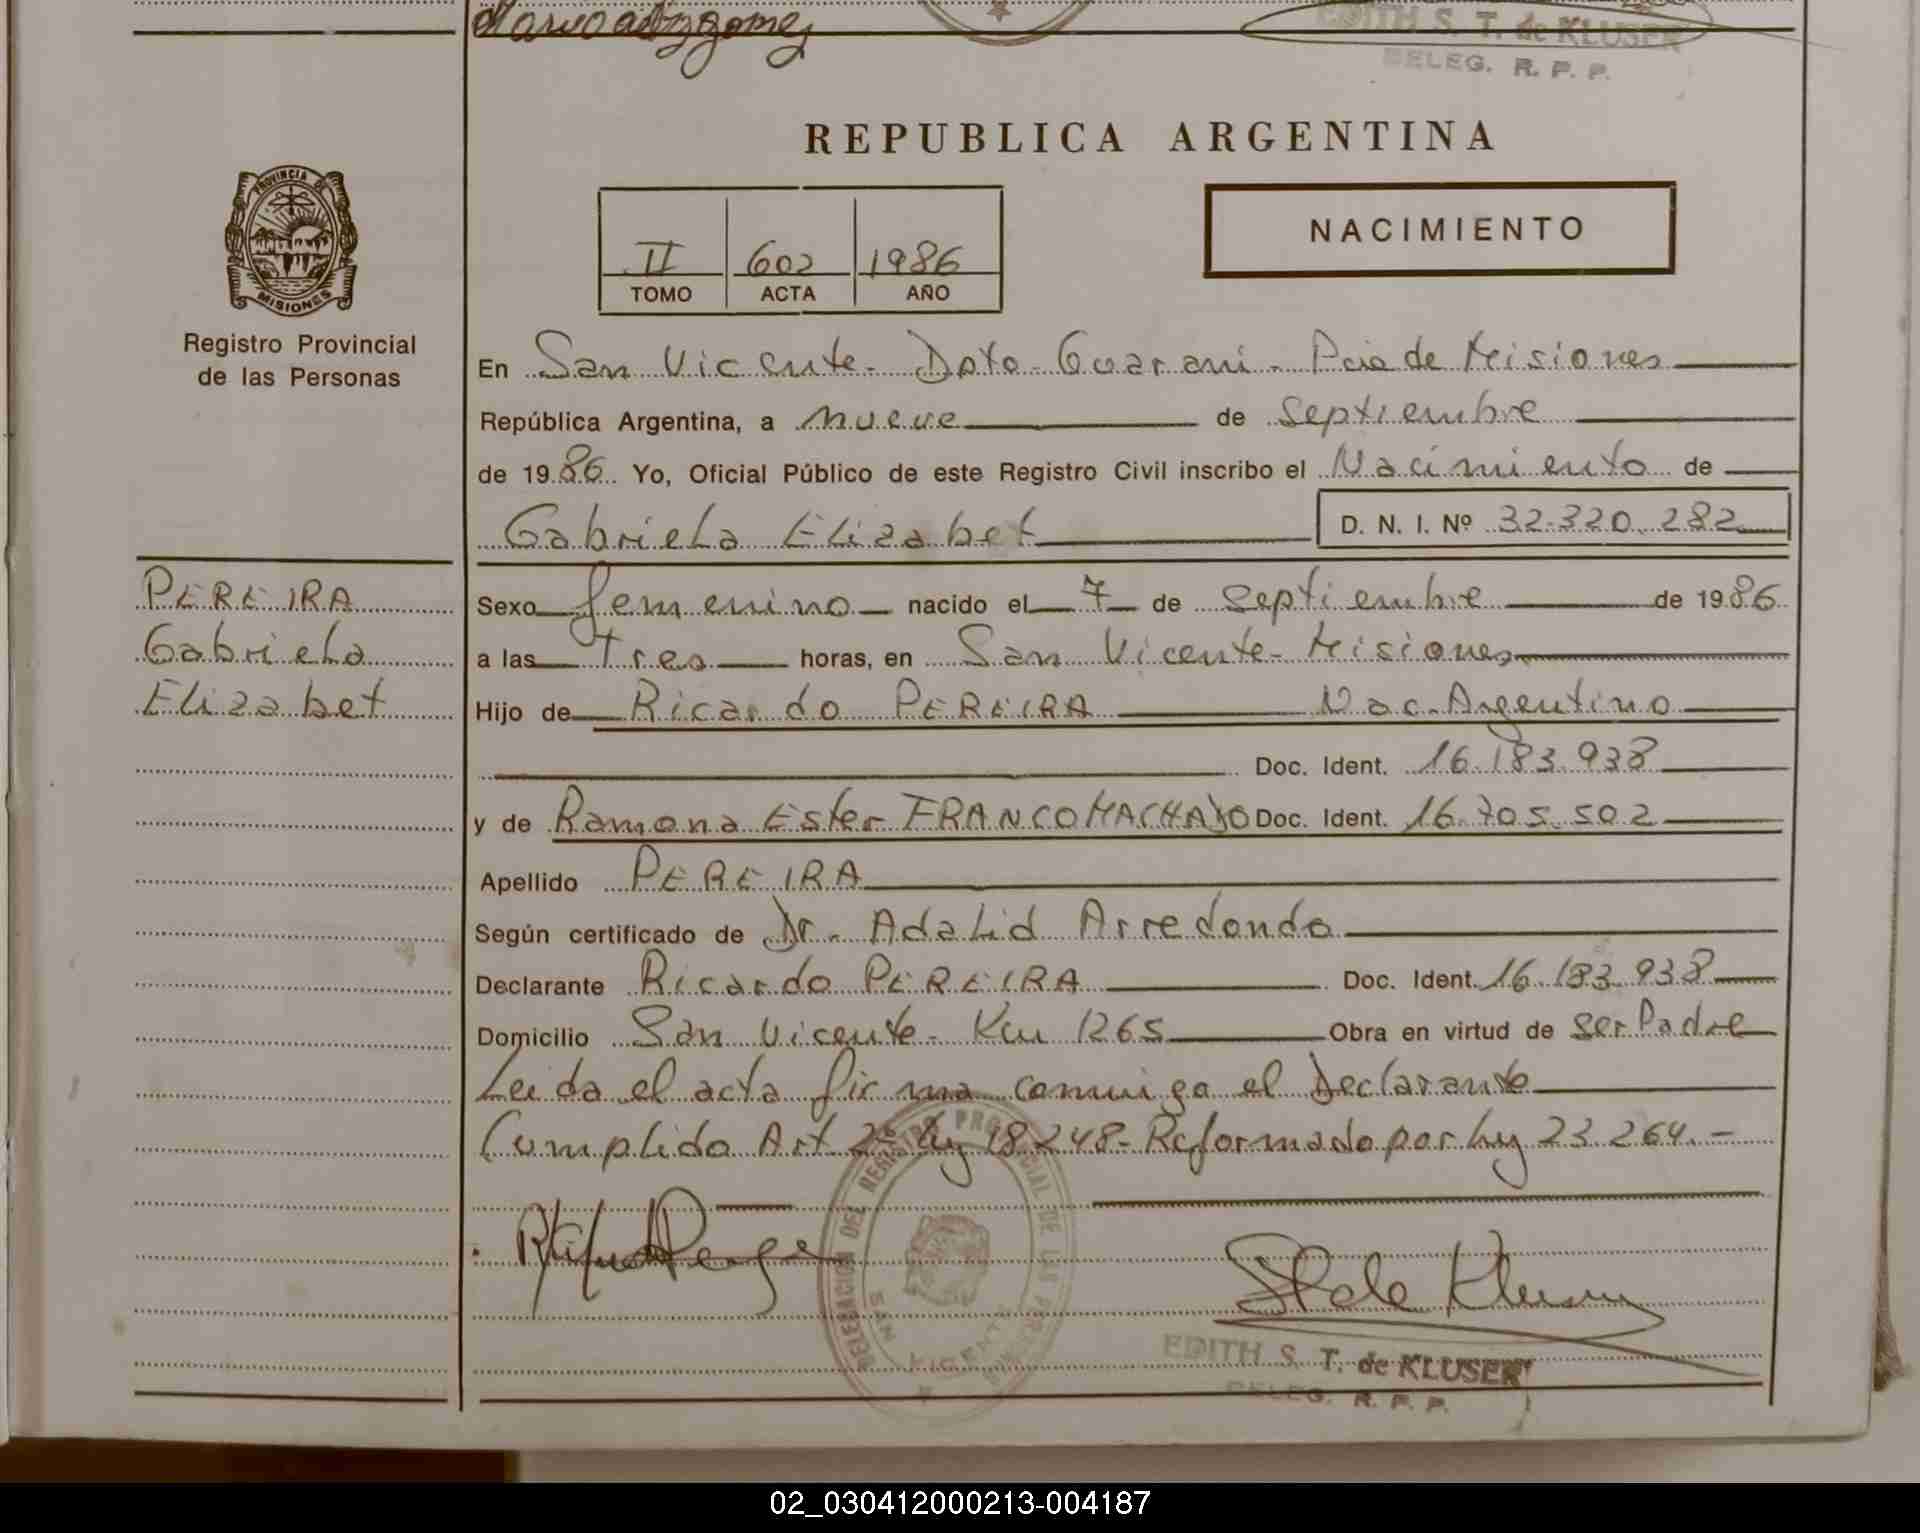 EDITH S. T. de KLUSER
DELEG. R. P. P.
REPUBLICA ARGENTINA
PROVINCIA DE
MISIONES
Registro Provincial
de las Personas
II 602 1986
TOMO ACTA AÑO
NACIMIENTO
En San Vicente - Dpto - Guarani - Pcia de Misiones
República Argentina, a nueve de septiembre
de 1986 Yo, Oficial Público de este Registro Civil inscribo el Nacimiento de
Gabriela Elizabet D. N. I. Nº 32.320.282
PEREIRA
Gabriela
Elizabet
Sexo femenino nacido el 7 de septiembre de 1986
a las Tres horas, en San Vicente - Misiones
Hijo de Ricardo PEREIRA Nac. Argentino
Doc. Ident. 16.183.938
y de Ramona Ester FRANCO MACHADO Doc. Ident. 16.705.502
Apellido PEREIRA
Según certificado de Dr. Adalid Arredondo
Declarante Ricardo PEREIRA Doc. Ident. 16.183.938
Domicilio San Vicente - Km 1265 Obra en virtud de ser Padre
Leida el acta firma conmigo el Declarante
Cumplido Art 2º ley 18248 - Reformado por ley 23.264. -
DELEGACION DEL REGISTRO PROVINCIAL DE LAS PERSONAS
SAN VICENTE
EDITH S. T. de KLUSER
DELEG. R. P. P.
02_030412000213-004187